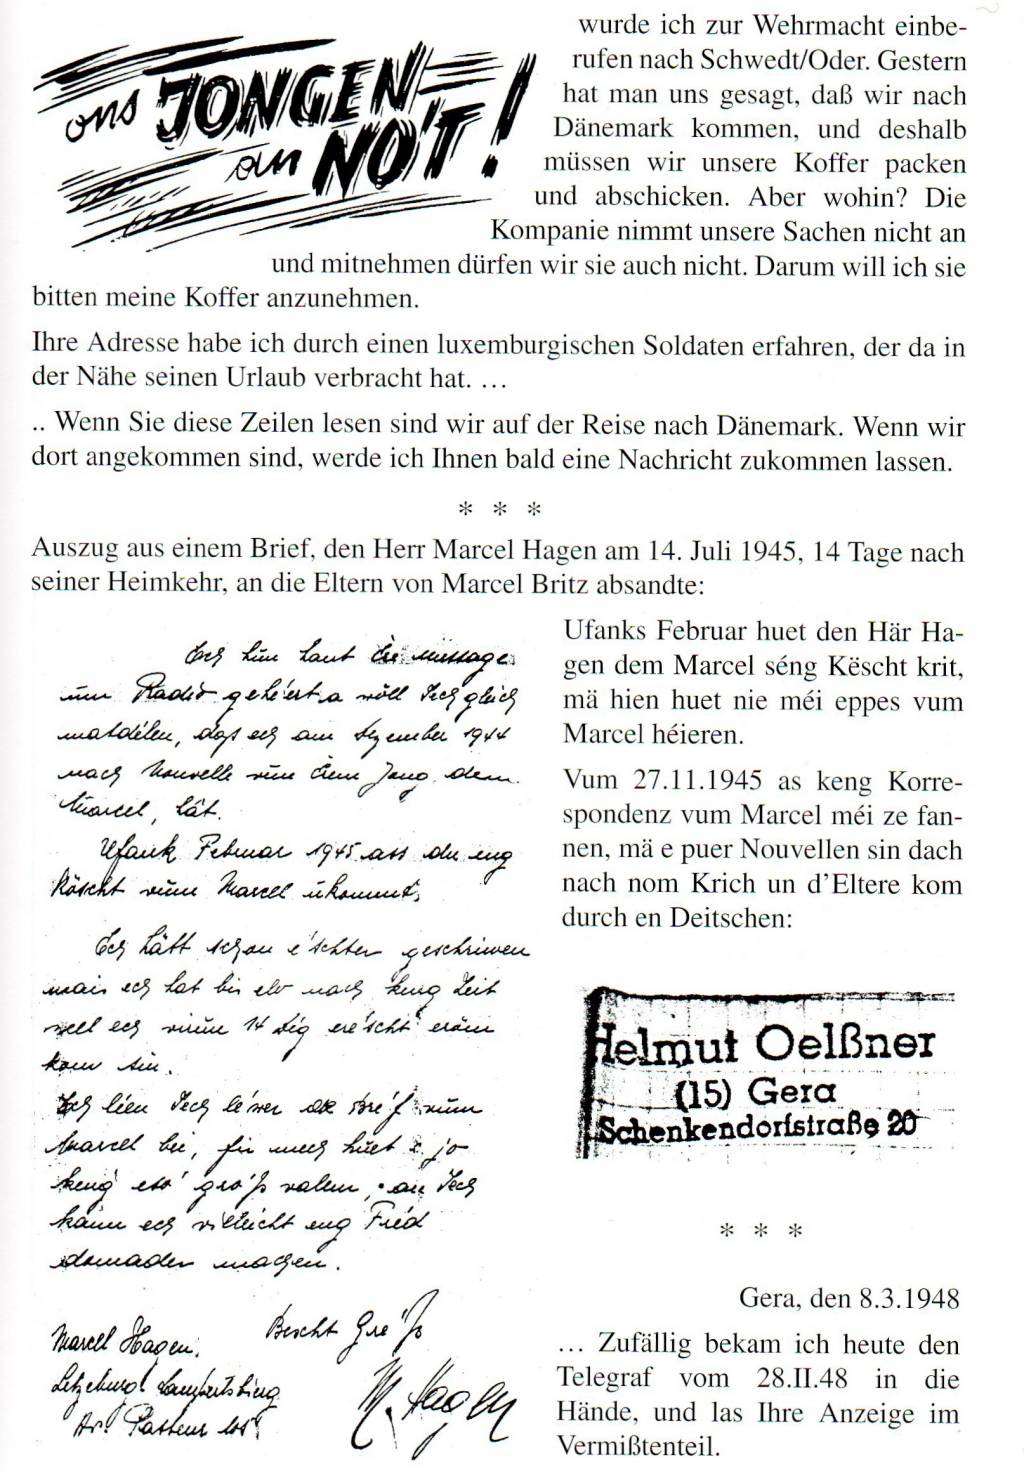 ons JONGEN
an NO'T!
wurde ich zur Wehrmacht einbe-
rufen nach Schwedt/Oder. Gestern
hat man uns gesagt, daß wir nach
Dänemark kommen, und deshalb
müssen wir unsere Koffer packen
und abschicken. Aber wohin? Die
Kompanie nimmt unsere Sachen nicht an
und mitnehmen dürfen wir sie auch nicht. Darum will ich sie
bitten meine Koffer anzunehmen.
Ihre Adresse habe ich durch einen luxemburgischen Soldaten erfahren, der da in
der Nähe seinen Urlaub verbracht hat. …
.. Wenn Sie diese Zeilen lesen sind wir auf der Reise nach Dänemark. Wenn wir
dort angekommen sind, werde ich Ihnen bald eine Nachricht zukommen lassen.
* * *
Auszug aus einem Brief, den Herr Marcel Hagen am 14. Juli 1945, 14 Tage nach
seiner Heimkehr, an die Eltern von Marcel Britz absandte:
Ech hun haut Ere message
um Radio gehéiert a wöll Iech gleich
matdélen, dass ech am Dezember 1944
nach Nouvelle vun Erem Jong, dem
Marcel, hat.
Ufank Februar 1945 ass du eng
Köscht vum Marcel ukomm.
Ech hätt schon é'schter geschriwen
mais ech hat bis elo nach keng Zeit
well ech virun 14 Dég éréscht erëm
kom sin.
Ech léen Iech léwer de Bréf vum
Marcel bei, fir mech huet e jo
keng eso' gro'ss valeur, an Iech
kann ech villeicht eng Fréd
domader machen.
Bescht Gré'ss
Marcel Hagen.
Letzeburg Lampertsbierg
Av. Pasteur
M. Hagen
Ufanks Februar huet den Här Ha-
gen dem Marcel séng Këscht krit,
mä hien huet nie méi eppes vum
Marcel héieren.
Vum 27.11.1945 as keng Korre-
spondenz vum Marcel méi ze fan-
nen, mä e puer Nouvellen sin dach
nach nom Krich un d'Eltere kom
durch en Deitschen:
Helmut Oelßner
(15) Gera
Schenkendorfstraße 20
* * *
Gera, den 8.3.1948
… Zufällig bekam ich heute den
Telegraf vom 28.II.48 in die
Hände, und las Ihre Anzeige im
Vermißtenteil.